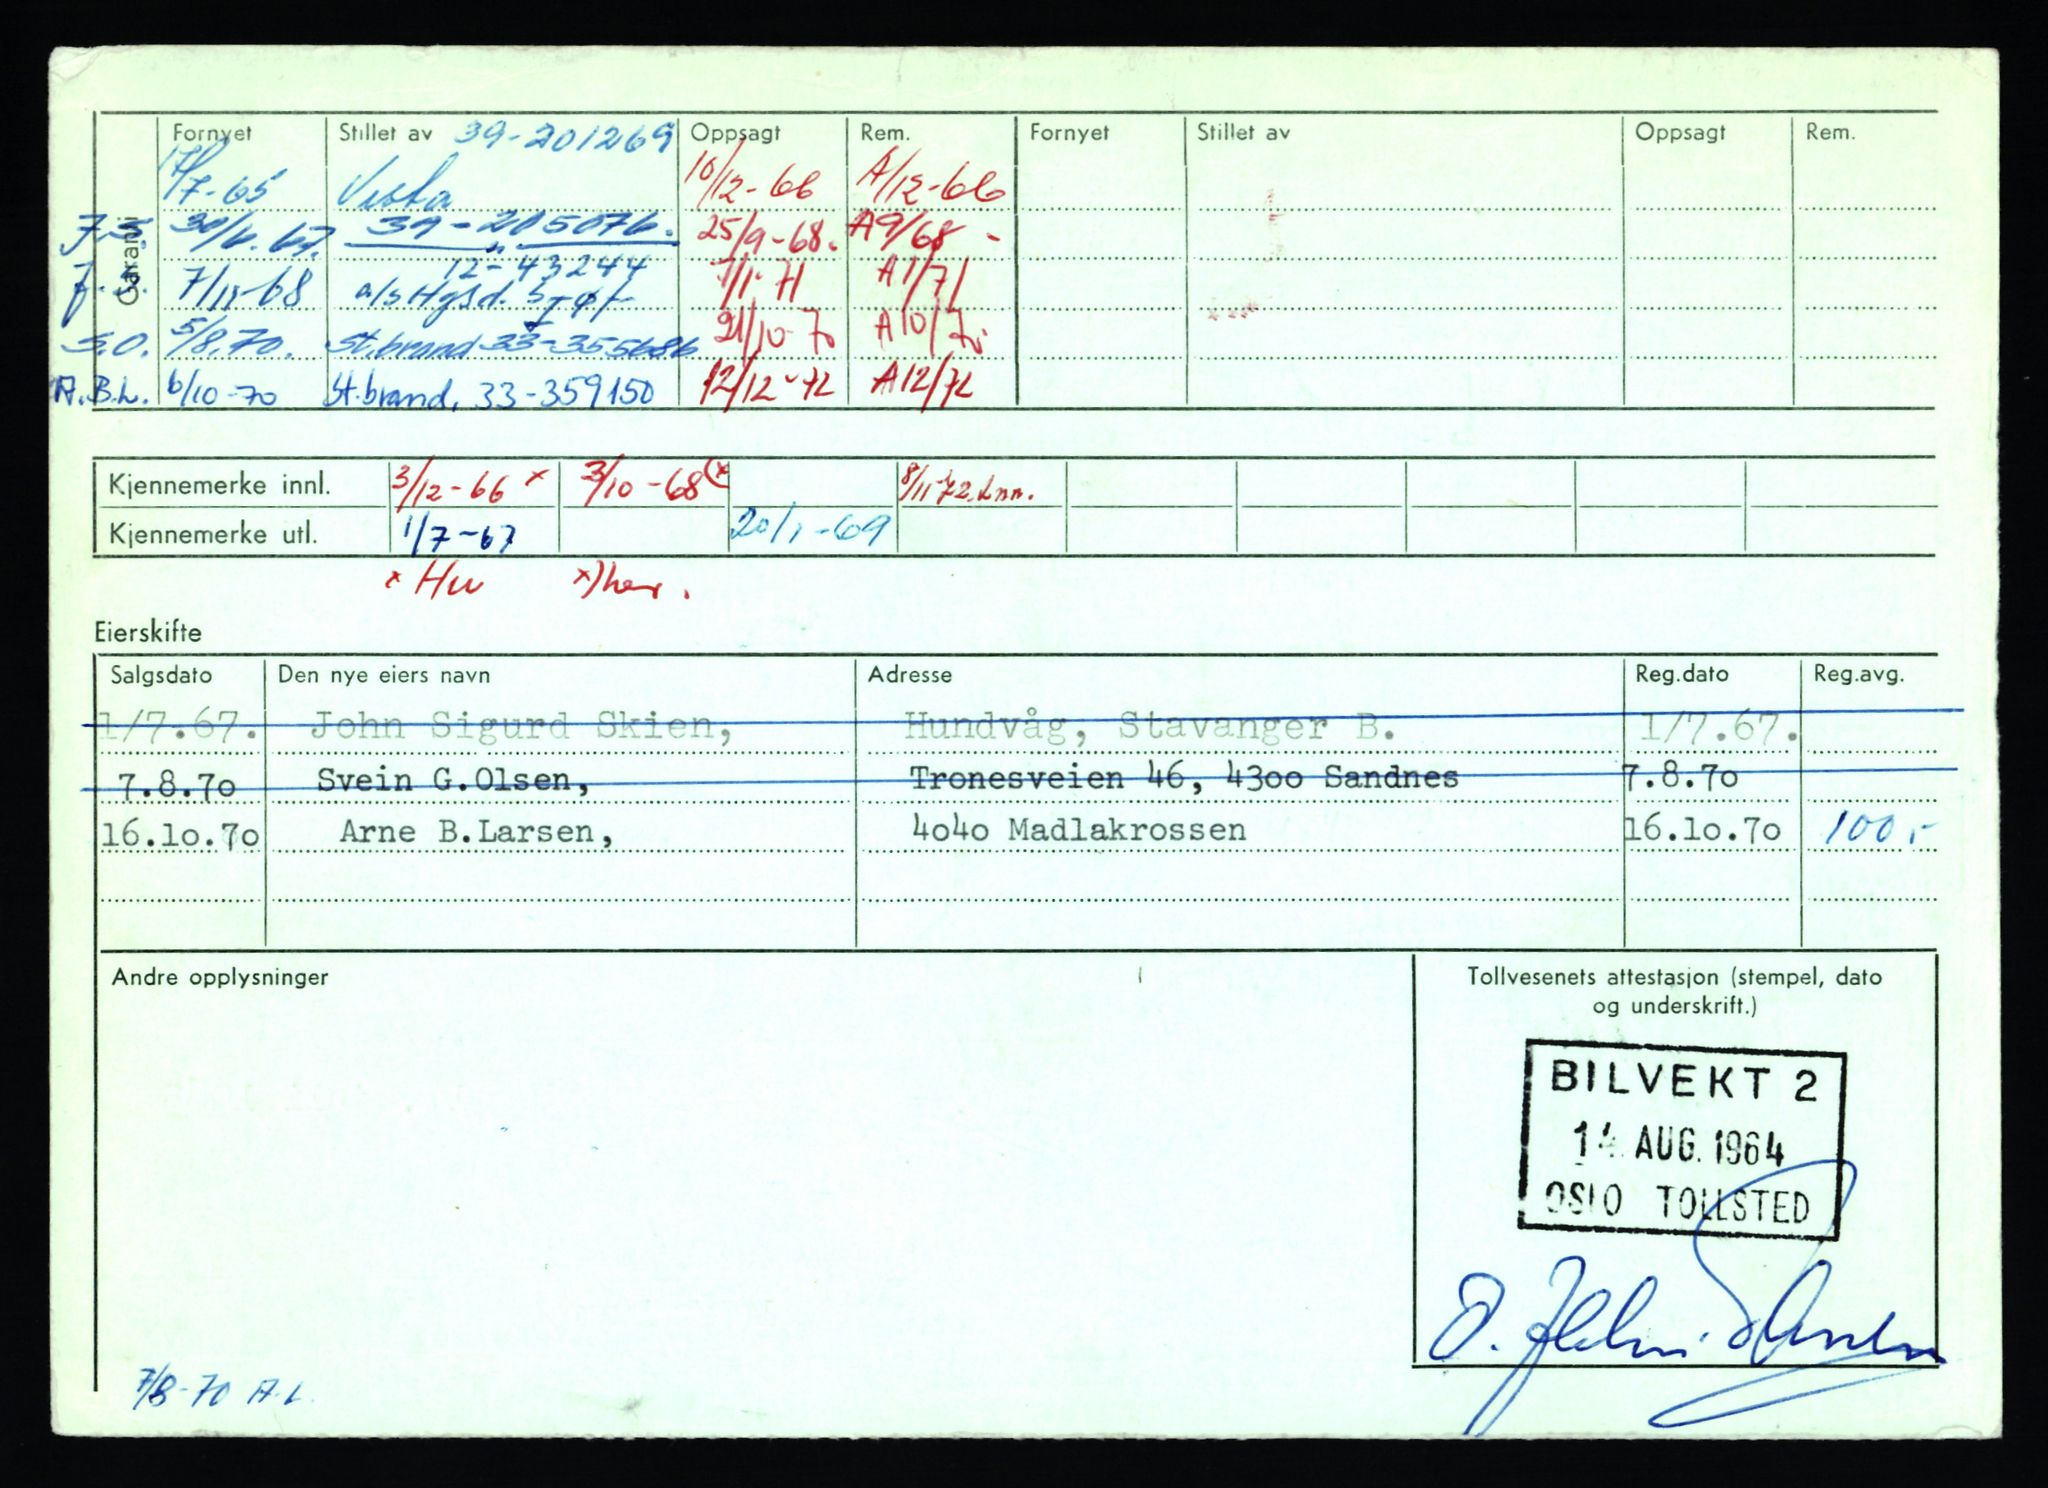 Fornyet Stillet av 39-201269 Oppsagt Rem. Fornyet Stillet av Oppsagt Rem.
Garanti
17/7-65 Vesta 10/12-66 A/12-66
J.S. 30/6.67. 39-205076. 25/9-68. A9/68 -
12-43244
7/11-68 a/s Hgsd. 1/1-71 A1/71
S.O. 5/8.70. St.brand 33-355686 21/10-70 A10/70
A.B.L. 6/10-70 St.brand, 33-359150 12/12-72 A12/72
Kjennemerke innl. 3/12-66 x 3/10-68 (x 8/11-72. Lnn.
Kjennemerke utl. 1/7-67 20/1-69
x Hu x) her.
Eierskifte
Salgsdato Den nye eiers navn Adresse Reg.dato Reg.avg.
1/7.67. John Sigurd Skien, Hundvåg, Stavanger B. 1/7.67.
7.8.70 Svein G.Olsen, Tronesveien 46, 4300 Sandnes 7.8.70
16.10.70 Arne B.Larsen, 4040 Madlakrossen 16.10.70 100,-
Andre opplysninger
Tollvesenets attestasjon (stempel, dato
og underskrift.)
BILVEKT 2
14 AUG. 1964
OSLO TOLLSTED
7/8-70 A.L.